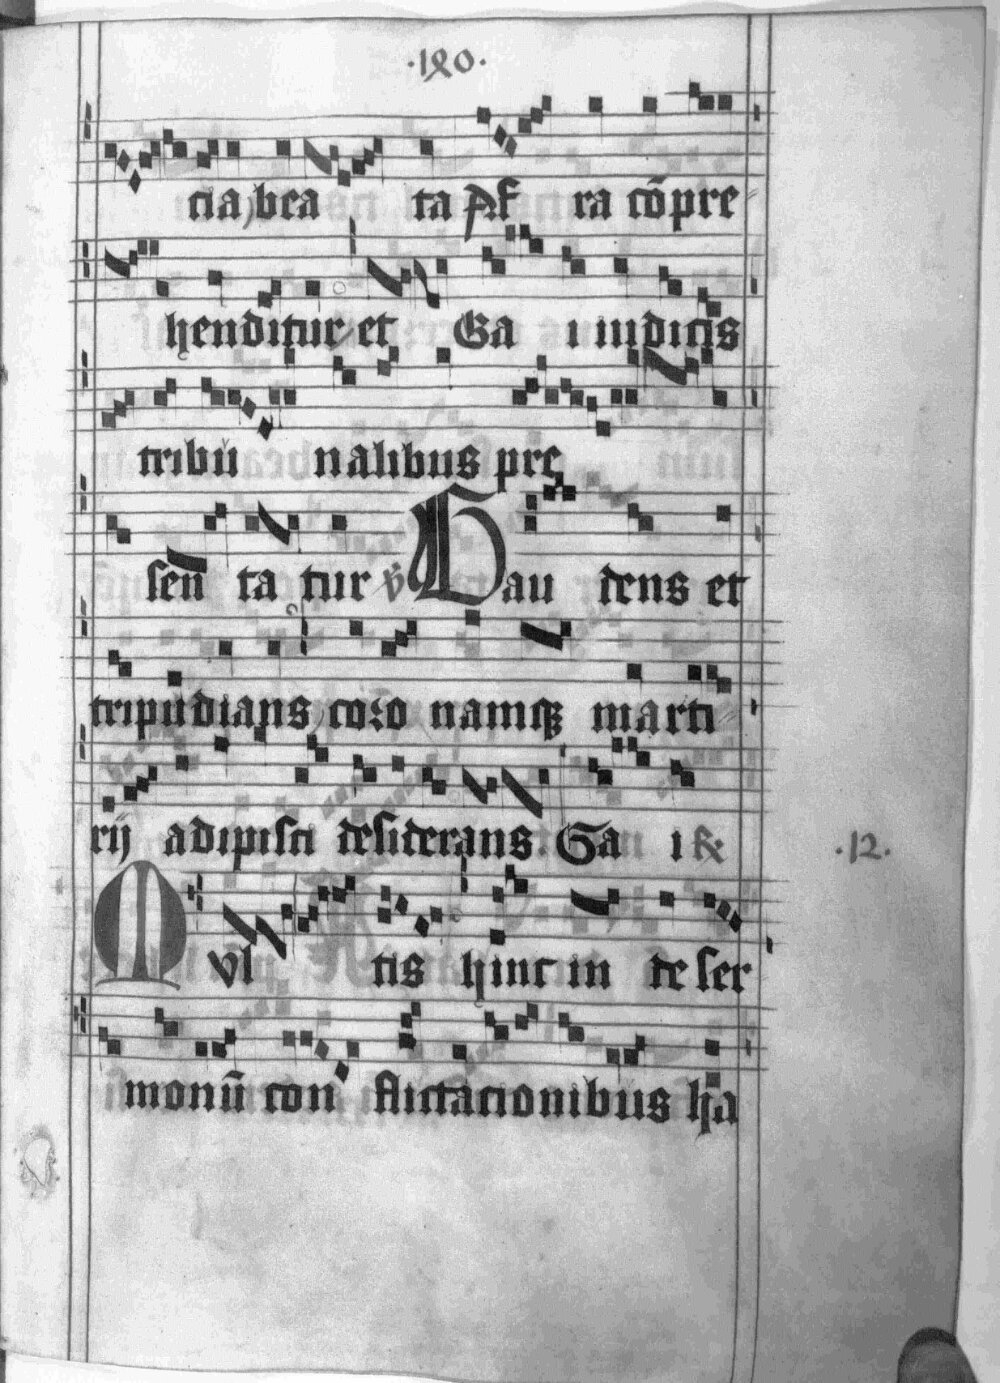 ·180·
cia bea ta Af ra cōpre
henditur et Ga i iudicis
tribu nalibus pre
sen ta tur ℣ Gau dens et
tripudians coro namqꝫ marti
rij adipisci desiderans. Ga i ℟ ·12·
Mvl tis hinc in de ser
monū con flictacionibus ha